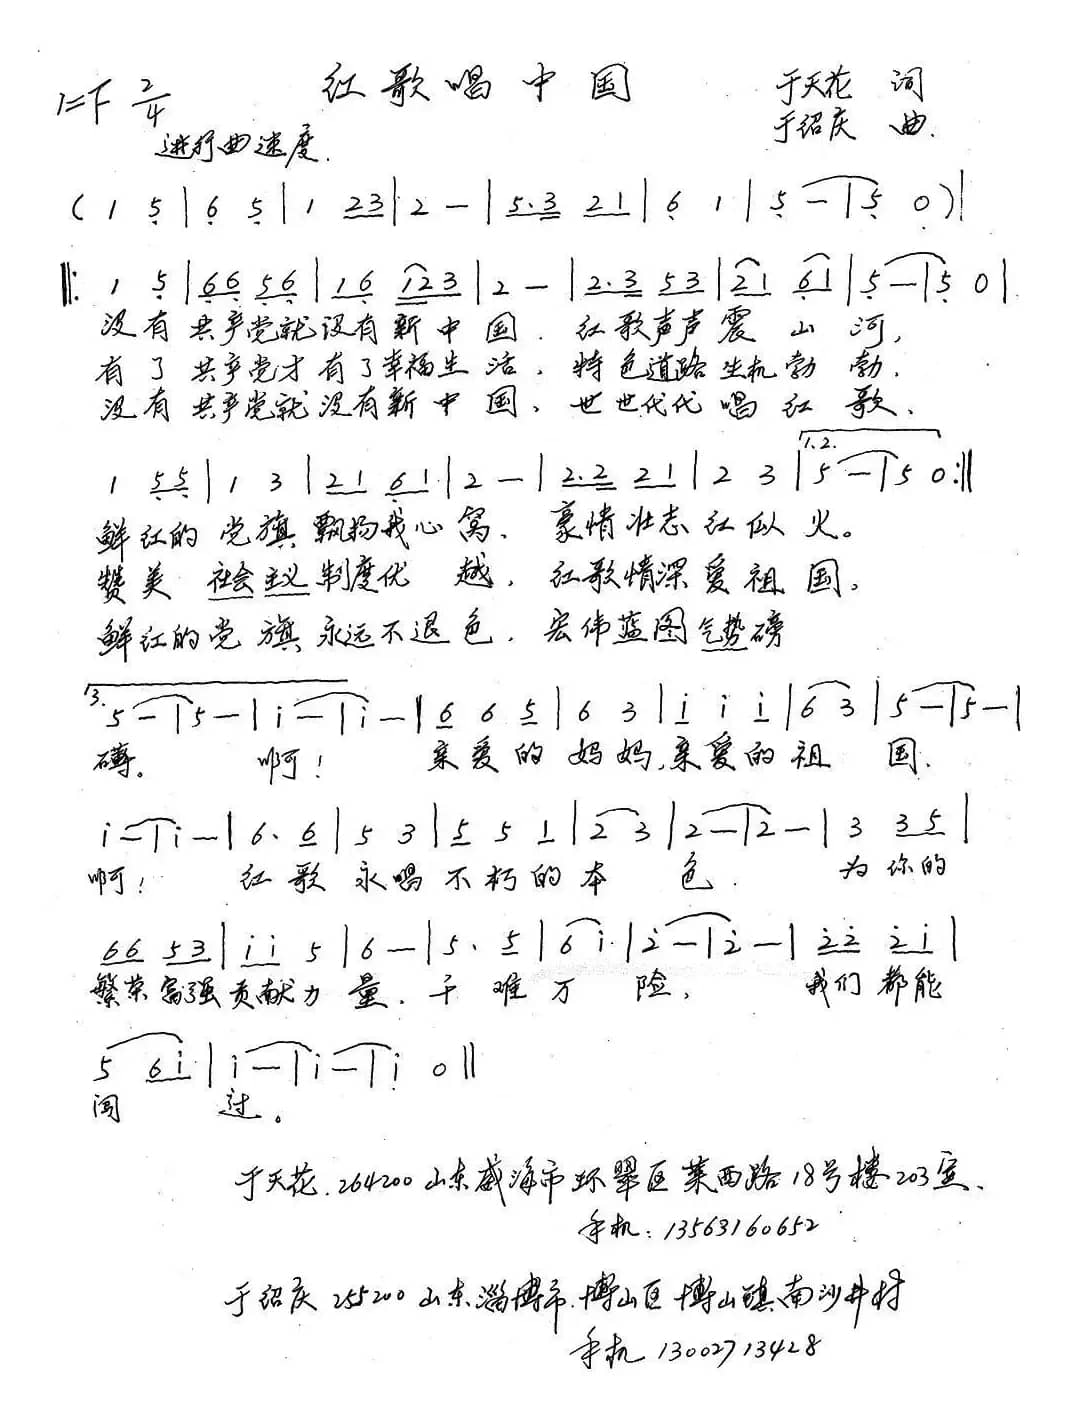 红歌唱中国
1=F 2/4
于天花 词
于绍庆 曲.
进行曲速度.
( 1 5 | 6 5 | 1 23 | 2 - | 5.3 21 | 6 1 | 5 - | 5 0 ) |
‖: 1 5 | 66 56 | 16 123 | 2 - | 2.3 53 | 21 61 | 5 - | 5 0 |
没有 共产党就没有新中国. 红歌声声震山河,
有了共产党才有了幸福生活. 特色道路生机勃勃.
没有共产党就没有新中国、世世代代唱红歌、
1.2.
1 55 | 1 3 | 21 61 | 2 - | 2.2 21 | 2 3 | 5 - | 5 0 :‖
鲜红的党旗飘扬我心窝、豪情壮志红似火。
赞美社会主义制度优越, 红歌情深爱祖国,
鲜红的党旗永远不退色. 宏伟蓝图气势磅
3.
5 - | 5 - | i - | i - | 6 6 5 | 6 3 | i i i | 6 3 | 5 - | 5 - |
礴。 啊! 亲爱的妈妈,亲爱的祖国.
i - | i - | 6. 6 | 5 3 | 5 5 1 | 2 3 | 2 - | 2 - | 3 35 |
啊! 红歌永唱不朽的本色. 为你的
66 53 | ii 5 | 6 - | 5. 5 | 6 i | 2 - | 2 - | 22 2i |
繁荣富强贡献力量. 千难万险, 我们都能
5 6i | i - | i - | i 0 ‖
闯过。
于天花.264200山东威海市环翠区莱西路18号楼203室、
手机:13563160652
于绍庆 255200山东淄博市.博山区博山镇南沙井村
手机 13002713428